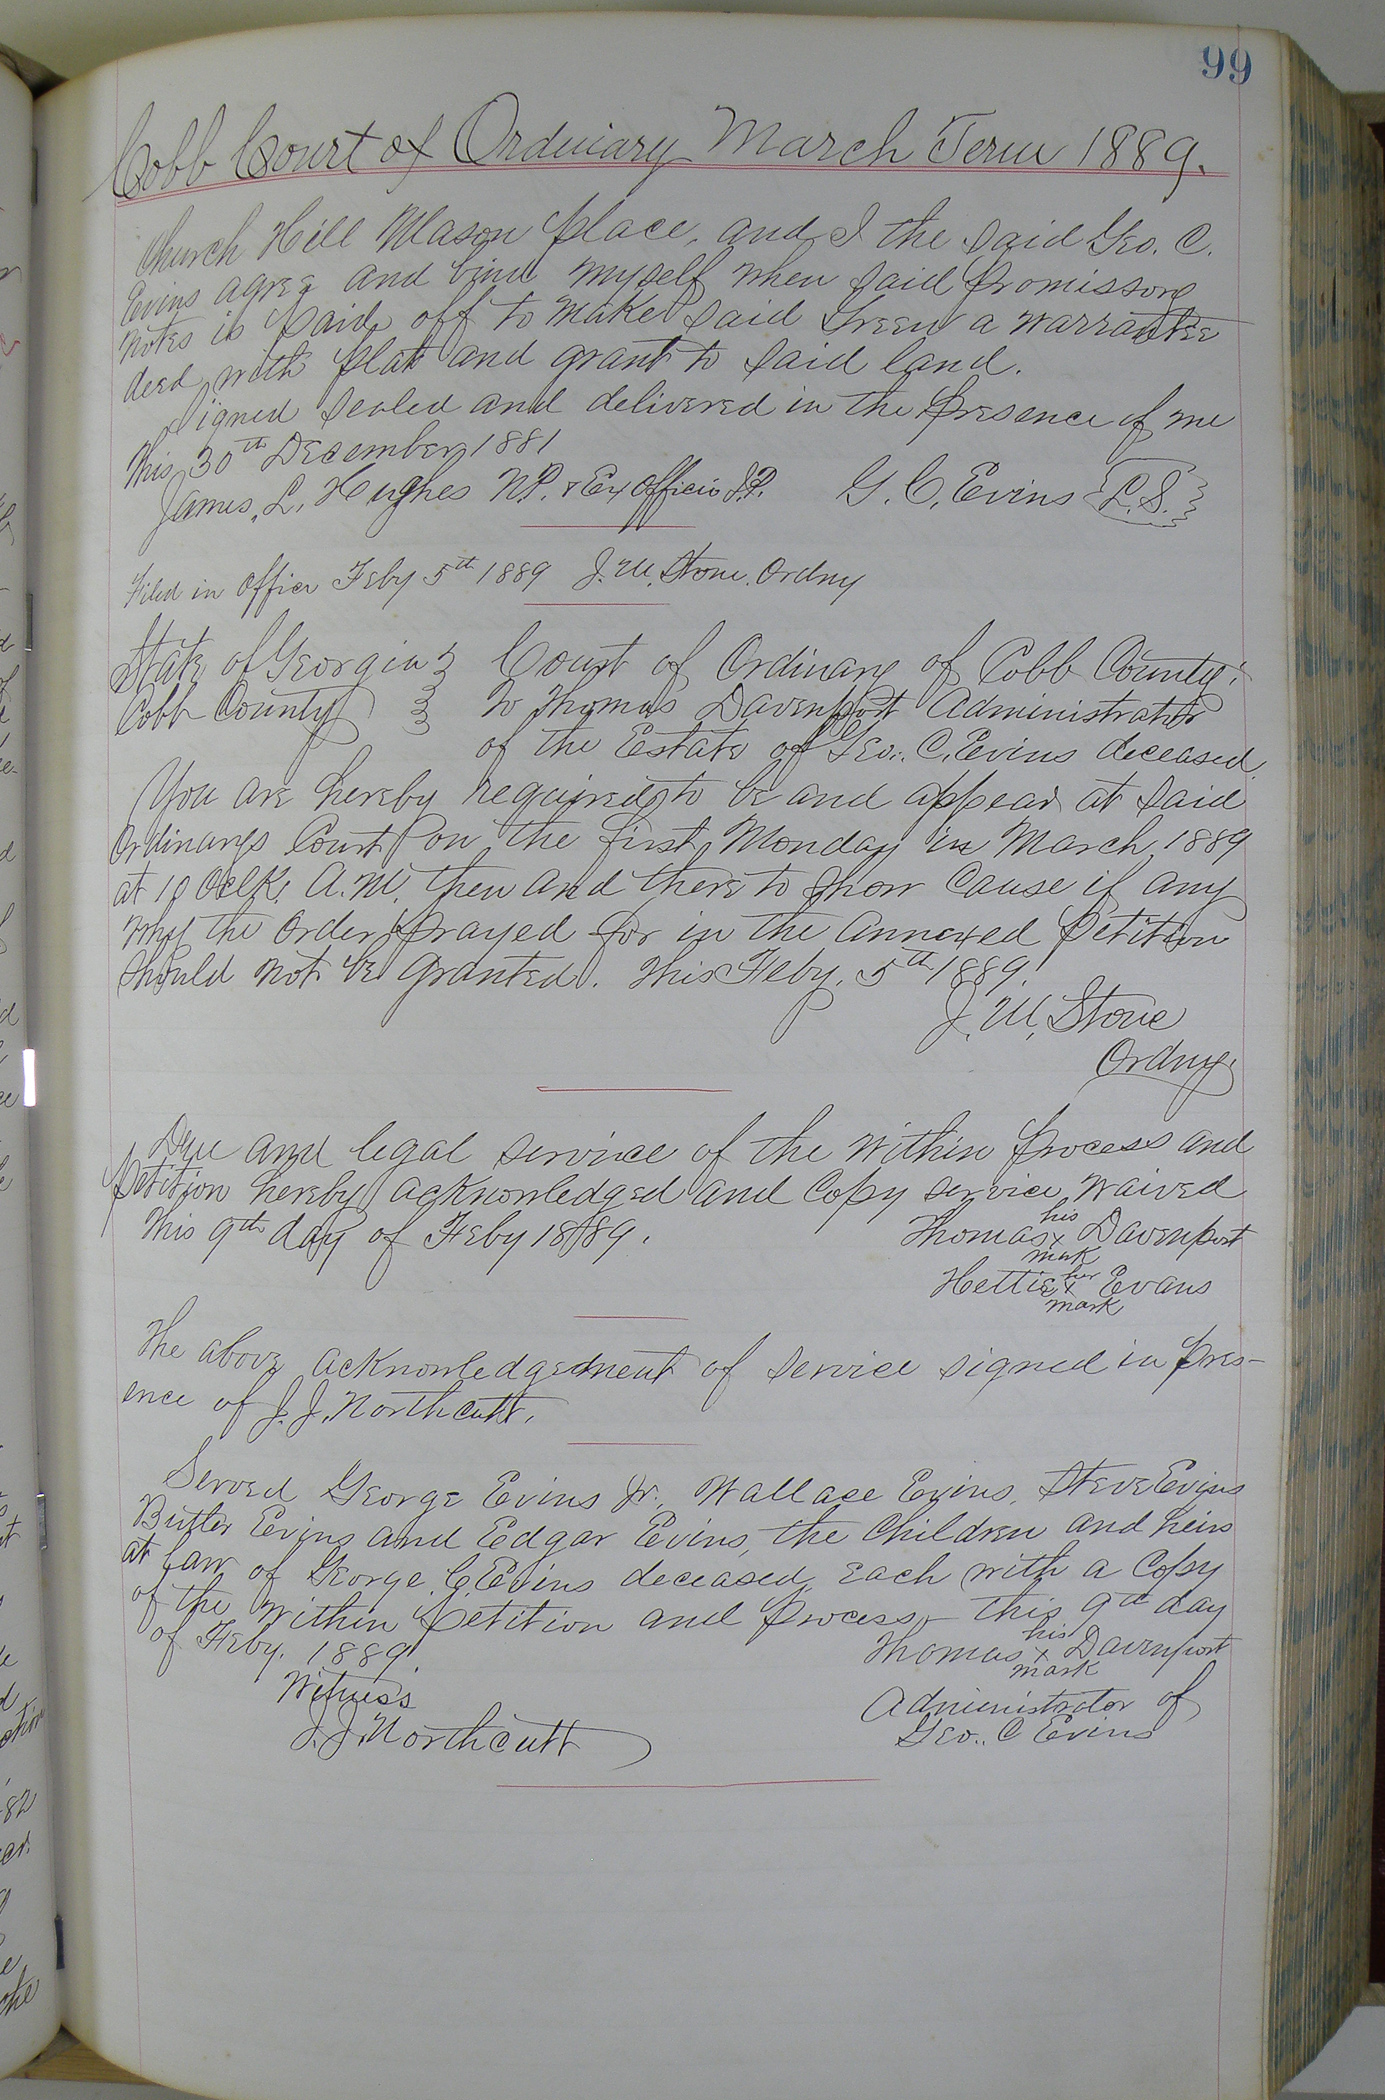 99
Cobb Court of Ordinary March Term 1889.
Church Hill Mason place, and I the said Geo. C.
Evins agree and bind myself when said promissory
notes is paid off to make said Green a warrantee
deed with plat and grant to said land.
Signed sealed and delivered in the presence of me
this 30th December 1881
James. L. Hughes N.P. & Ex officio J.P. G. C. Evins L.S.
Filed in office Feby 5th 1889 J. M. Stone. Ordny
State of Georgia Court of Ordinary of Cobb County.
Cobb County To Thomas Davenport Administrator
of the Estate of Geo. C. Evins deceased.
You are hereby required to be and appear at said
Ordinarys Court on the first Monday in March 1889
at 10 Oclk. A.M. then and there to show cause if any
why the order prayed for in the annexed Petition
should not be granted. This Feby. 5th 1889.
J. M. Stone
Ordny.
Due and legal service of the within process and
petition hereby acknowledged and Copy service waived
this 9th day of Feby 1889. Thomas his x mark Davenport
Hettie her x mark Evans
The above acknowledgedment of service signed in pres-
ence of J. J. Northcutt.
Served George Evins Jr. Wallace Evins, Steve Evins
Butler Evins and Edgar Evins, the children and heirs
at law of George C. Evins deceased, each with a Copy
of the within petition and process this 9th day
of Feby. 1889 Thomas his x mark Davenport
Witness Administrator of
J. J. Northcutt Geo. C Evins